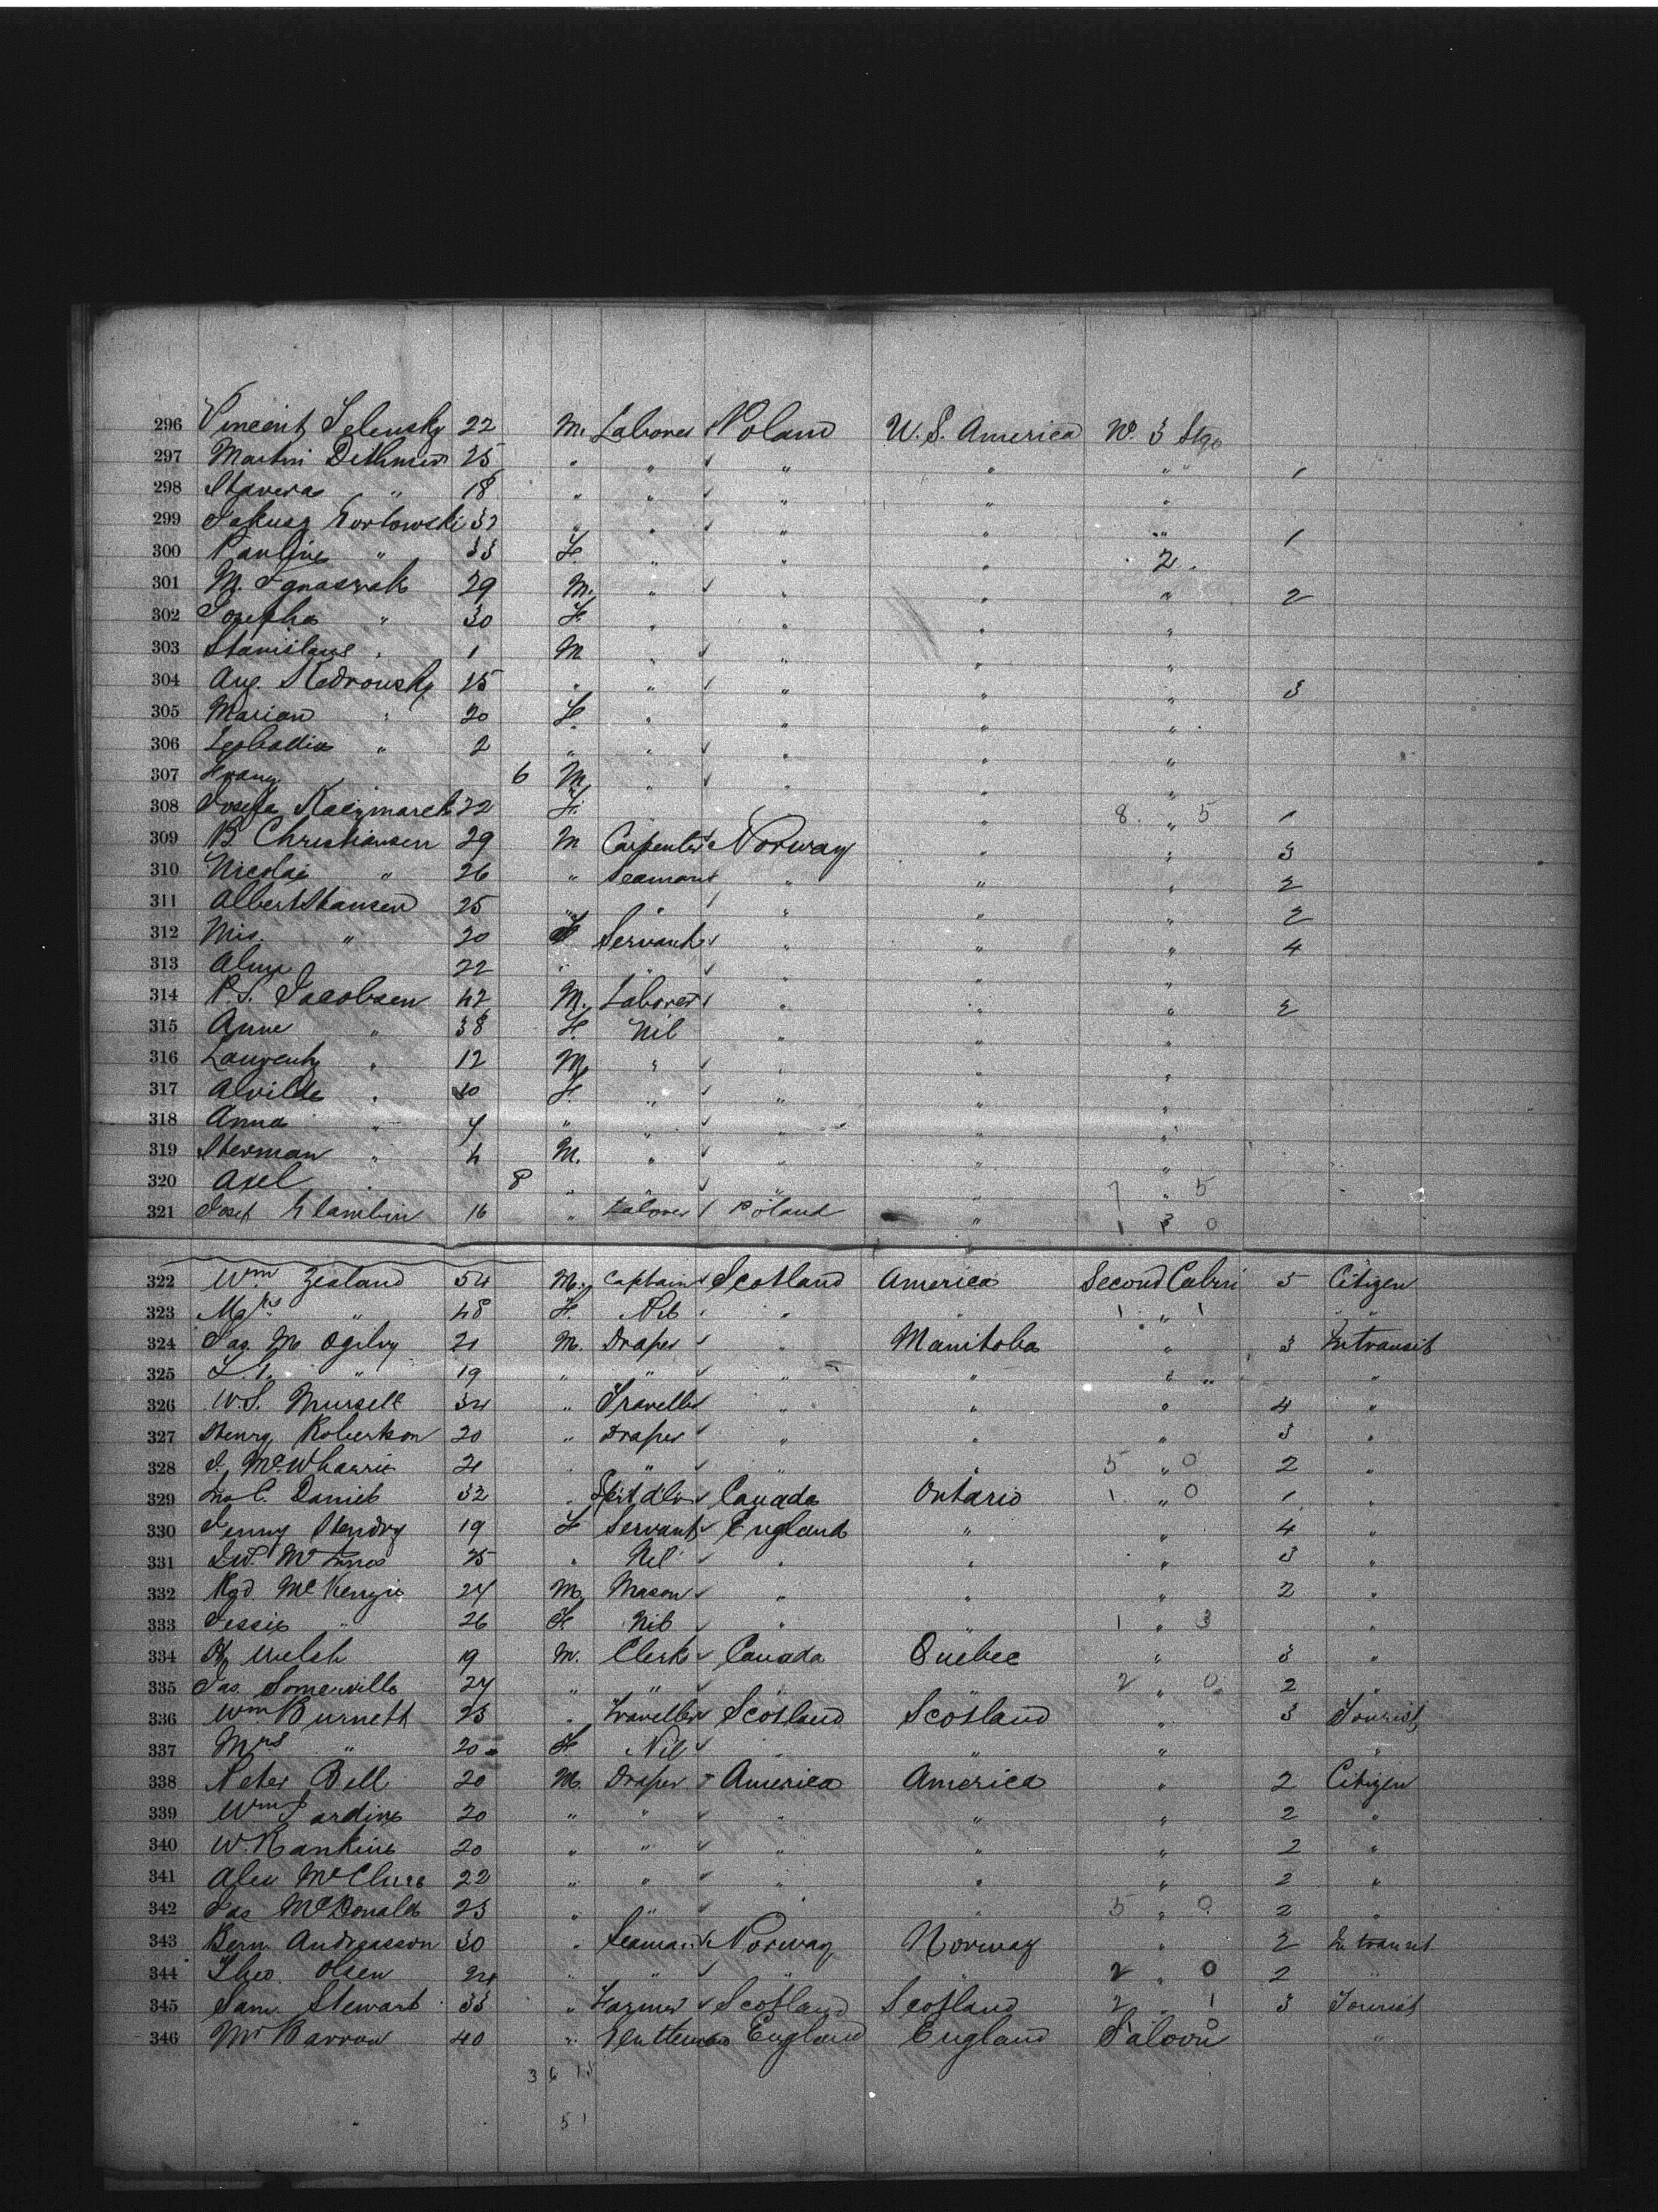 296 Vincent Selensky 22 M. Laborer Poland U.S. America No. 3 Stge
297 Martin Dethmers 25 " " " " " 1
298 " 18 " " " " "
299 Jakusz Korlowski 37 " " " " " 1
300 Pauline " 33 F. " " " 2
301 M. Ignaszak 29 M. " " " " 2
302 Josepha " 30 F. " " " "
303 Stanislaus " 1 M " " " "
304 Aug. Kedrowsky 25 " " " " " 3
305 Marian " 20 F. " " " "
306 Leokadia " 2 " " " " "
307 Franz 6 M. " " " "
308 Josefa Kaczmarek 22 F. " 8 " 5 1
309 B Christiansen 29 M Carpenter Norway " " 3
310 Nicolai " 26 " Seaman " " " 2
311 Albert Hansen 25 " " " " " 2
312 Mrs. " 20 F Servant " " " 4
313 22 " " " " "
314 P.S. Jacobsen 42 M. Laborer " " " 2
315 Anne " 38 F. Nil " " "
316 Laurentz " 12 M. " " " "
317 Alvilde " 10 F. " " " "
318 Anna " 7 " " " " "
319 Herman " 4 M. " " " "
320 Axel " 8 " " " " 7 " 5
321 Josef 16 " Laborer Poland " 1 3 0
322 Wm Zealand 54 M. Captain Scotland America Second Cabin 5 Citizen
323 Mrs " 48 F. Nil " " 1 " 1 "
324 Jas. M Ogilvy 21 M. Draper " Manitoba " 3 Intransit
325 " 19 " " " " " "
326 W.S. Mursell 34 " Traveller " " " 4 "
327 Henry Robertson 20 " Draper " " " 3 "
328 J. McWharrie 21 " " " " 5 " 0 2 "
329 Jno C. Daniels 32 " Canada Ontario 1 " 0 1 "
330 Jenny Hendry 19 F Servant England " " 4 "
331 25 " Nil " " " 3 "
332 Rgd. McKenzie 24 M. Mason " " " 2 "
333 Jessie " 26 F Nil " " 1 " 3 "
334 Welsh 19 M. Clerk Canada Quebec " 3 "
335 Jas. Somerville 24 " " " " 2 " 0 2 "
336 Wm Burnett 23 " Traveller Scotland Scotland " 3 Tourist
337 Mrs " 20 F Nil " " " "
338 Peter Bell 20 M. Draper America America " 2 Citizen
339 Wm Jardine 20 " " " " " 2 "
340 W. Rankine 20 " " " " " 2 "
341 Alex McClure 22 " " " " " 2 "
342 Jas McDonald 23 " " " " 5 " 0 2 "
343 Bern Andreasson 30 " Seaman Norway Norway " 2 In transit
344 Theo. Olsen 24 " " " " 2 " 0 2 "
345 Sam. Stewart 33 " Farmer Scotland Scotland 2 " 1 3 Tourist
346 Mr Barron 40 " Gentleman England England Saloon "
3 6 15
51